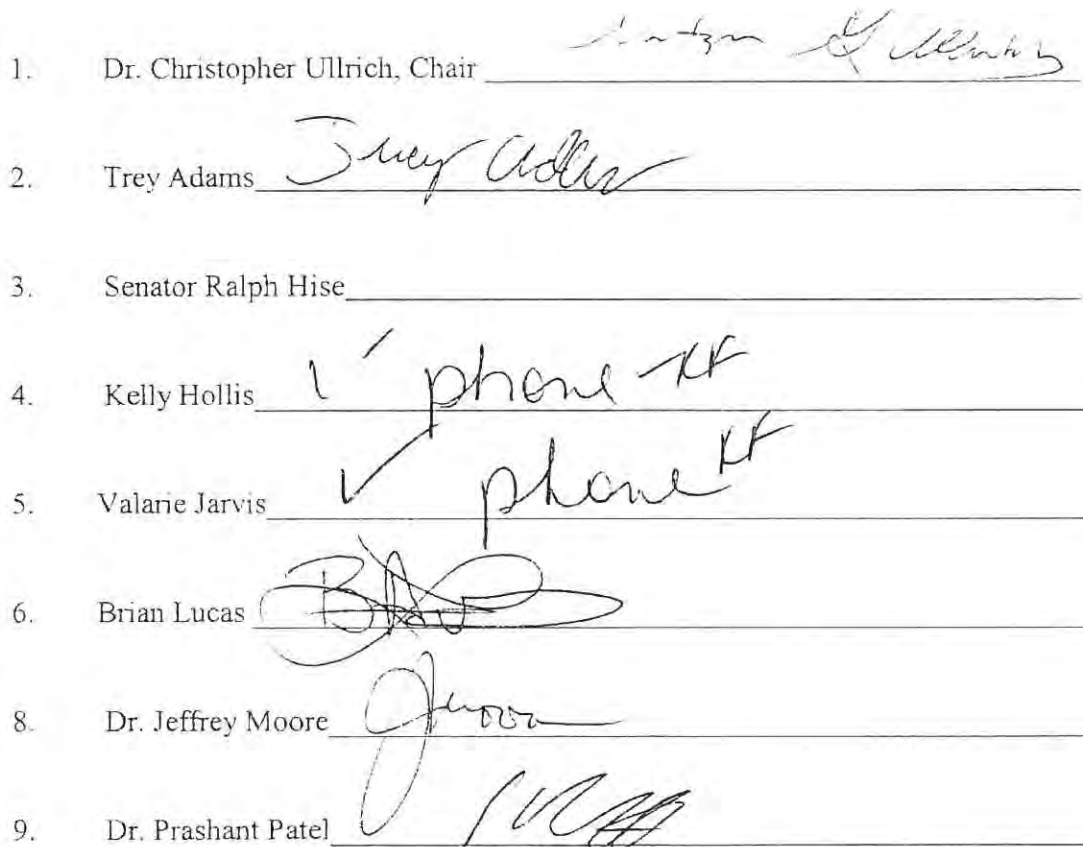 1. Dr. Christopher Ullrich, Chair
2. Trey Adams Trey Adams
3. Senator Ralph Hise
4. Kelly Hollis ✓ phone KF
5. Valarie Jarvis ✓ phone KF
6. Brian Lucas
8. Dr. Jeffrey Moore
9. Dr. Prashant Patel